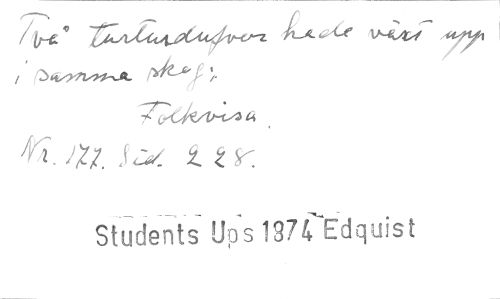 Två turturdufvor hade växt upp
i samma skog;
Folkvisa.
Nr. 177. Sid. 228.
Students Ups 1874 Edquist